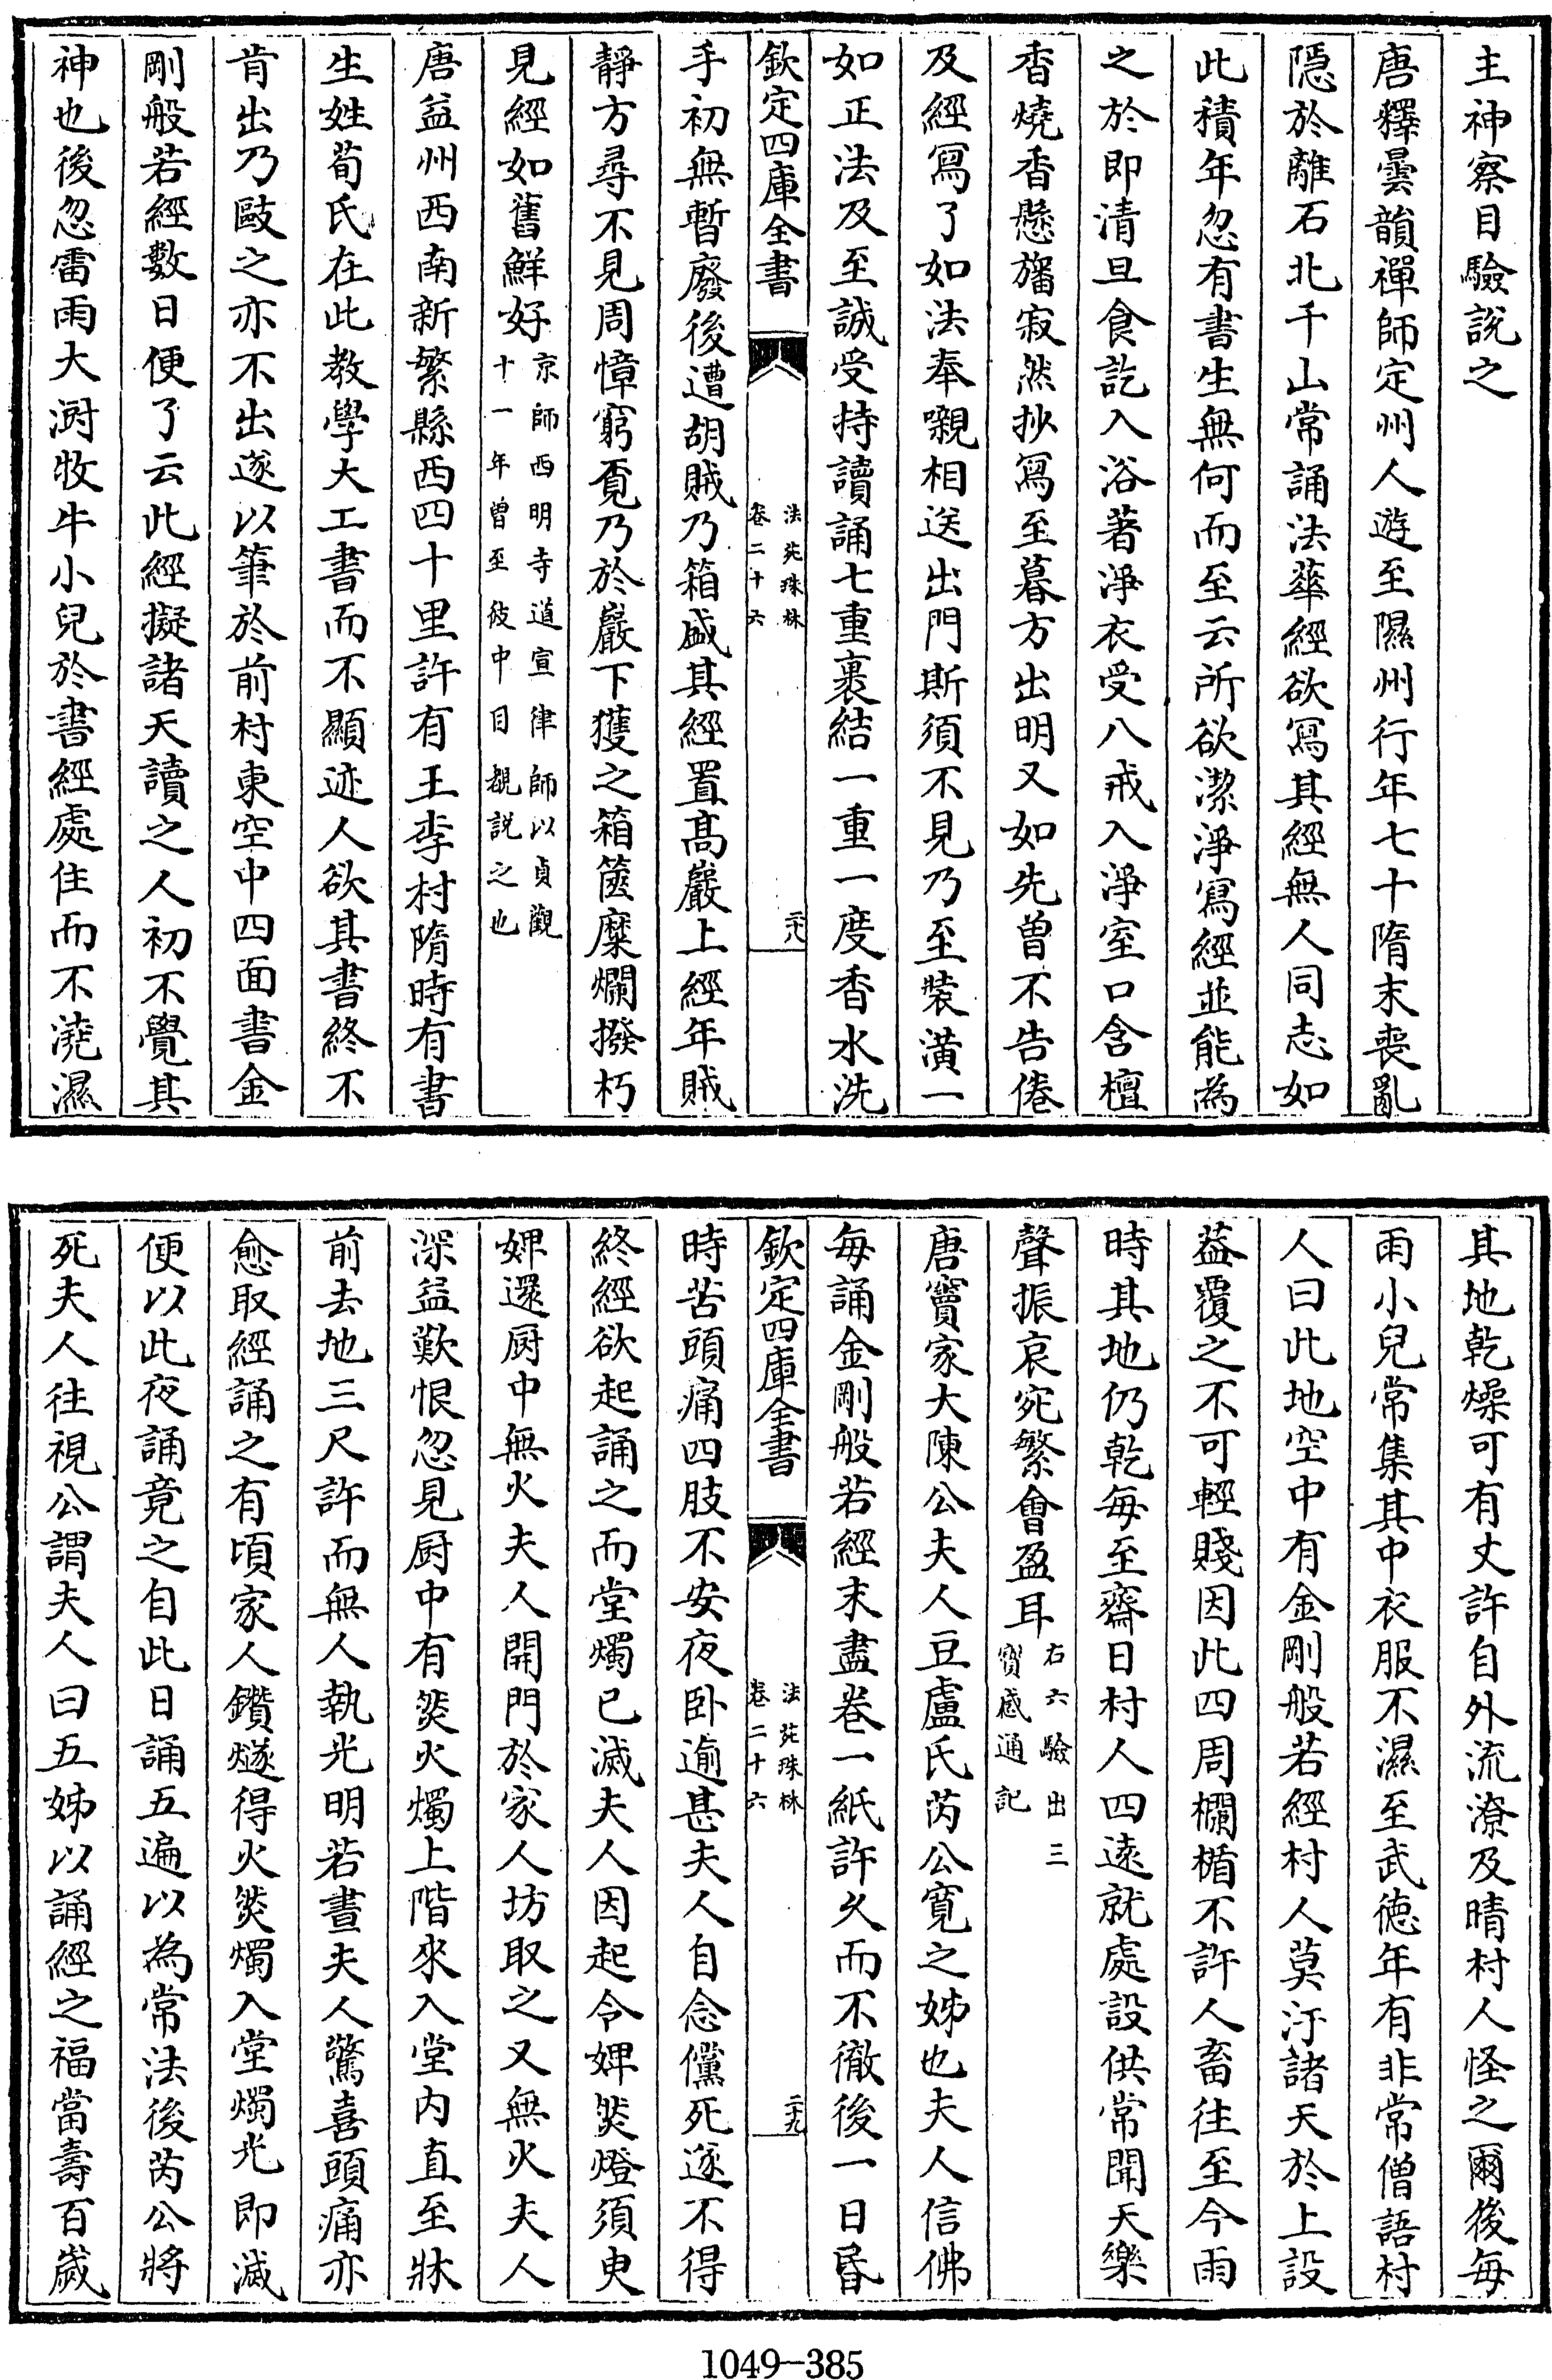 主神察目驗說之
唐釋曇韻禪師定州人遊至隰州行年七十隋末喪亂
隱於離石北千山常誦法華經欲寫其經無人同志如
此積年忽有書生無何而至云所欲潔淨寫經並能為
之於即清旦食訖入浴著淨衣受八戒入淨室口含檀
香燒香懸旛寂然抄寫至暮方出明又如先曾不告倦
及經寫了如法奉嚫相送出門斯須不見乃至裝潢一
如正法及至誠受持讀誦七重裹結一重一度香水洗
欽定四庫全書
法苑珠林
卷二十六
二十八
手初無暫廢後遭胡賊乃箱盛其經置高巖上經年賊
靜方尋不見周慞窮覔乃於巖下獲之箱篋糜爛撥朽
見經如舊鮮好
京師西明寺道宣律師以貞觀
十一年曾至彼中目覩説之也
唐益州西南新繁縣西四十里許有王李村隋時有書
生姓荀氏在此教學大工書而不顯迹人欲其書終不
肯出乃毆之亦不出遂以筆於前村東空中四面書金
剛般若經數日便了云此經擬諸天讀之人初不覺其
神也後忽雷雨大澍牧牛小兒於書經處住而不澆濕
其地乾燥可有丈許自外流潦及晴村人怪之爾後每
雨小兒常集其中衣服不濕至武徳年有非常僧語村
人曰此地空中有金剛般若經村人莫汙諸天於上設
葢覆之不可輕賤因此四周欄楯不許人畜往至今雨
時其地仍乾每至齋日村人四遠就處設供常聞天樂
聲振哀宛繁會盈耳
右六驗出三
寳感通記
唐竇家大陳公夫人豆盧氏芮公寛之姊也夫人信佛
每誦金剛般若經末盡卷一紙許久而不徹後一日昏
欽定四庫全書
法苑珠林
卷二十六
二十九
時苦頭痛四肢不安夜卧逾甚夫人自念儻死遂不得
終經欲起誦之而堂燭已滅夫人因起令婢㷋燈須臾
婢還厨中無火夫人開門於家人坊取之又無火夫人
深益歎恨忽見厨中有㷋火燭上階來入堂内直至牀
前去地三尺許而無人執光明若晝夫人驚喜頭痛亦
愈取經誦之有頃家人鑽燧得火㷋燭入堂燭光即滅
便以此夜誦竟之自此日誦五遍以為常法後芮公將
死夫人往視公謂夫人曰五姊以誦經之福當壽百歲
1049-385